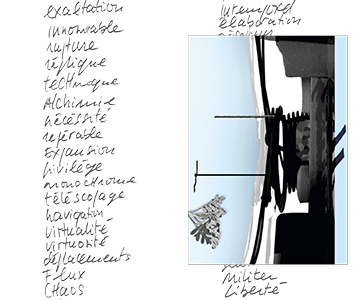 exaltation
innommable
rupture
réplique
technique
Alchimie
nécessité
repérable
Expansion
privilège
monochrome
téléscopage
navigation
virtualité
virtuosité
déplacements
Flux
CHAOS
intemporel
élaboration
Militer
Liberté